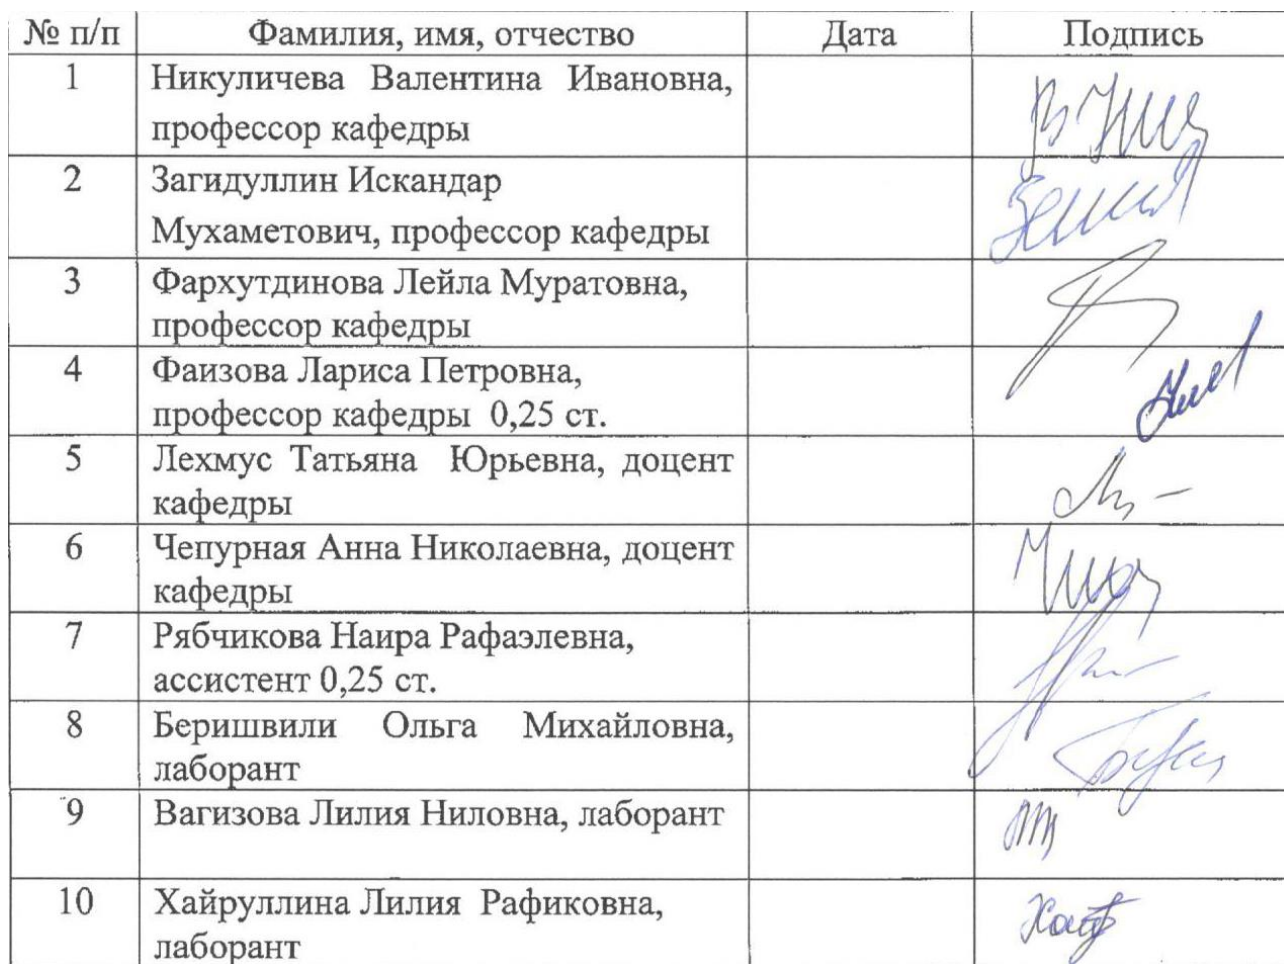 № п/п Фамилия, имя, отчество Дата Подпись
1 Никуличева Валентина Ивановна,
профессор кафедры
2 Загидуллин Искандар
Мухаметович, профессор кафедры
3 Фархутдинова Лейла Муратовна,
профессор кафедры
4 Фаизова Лариса Петровна,
профессор кафедры 0,25 ст.
5 Лехмус Татьяна Юрьевна, доцент
кафедры
6 Чепурная Анна Николаевна, доцент
кафедры
7 Рябчикова Наира Рафаэлевна,
ассистент 0,25 ст.
8 Беришвили Ольга Михайловна,
лаборант
9 Вагизова Лилия Ниловна, лаборант
10 Хайруллина Лилия Рафиковна,
лаборант